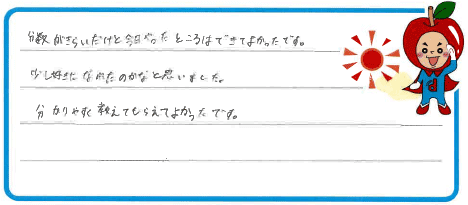 分数がきらいだけど今日やったところはできてよかったです。
少し好きになれたのかなと思いました。
分かりやすく教えてもらえてよかったです。